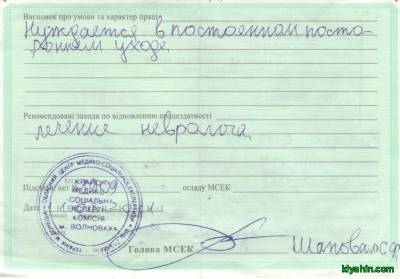 Висновок про умови та характер праці
Нуждается в постоянном посто
роннем уходе
Рекомендовані заходи по відновленню працездатності
лечение невролога
Підстава: акт огляду МСЕК
МЕДИКО-
СОЦІАЛЬНА
ЕКСПЕРТНА
КОМІСІЯ
М. ВОЛНОВАХА
Дата
Голова МСЕК
Шаповал
idyahin.com